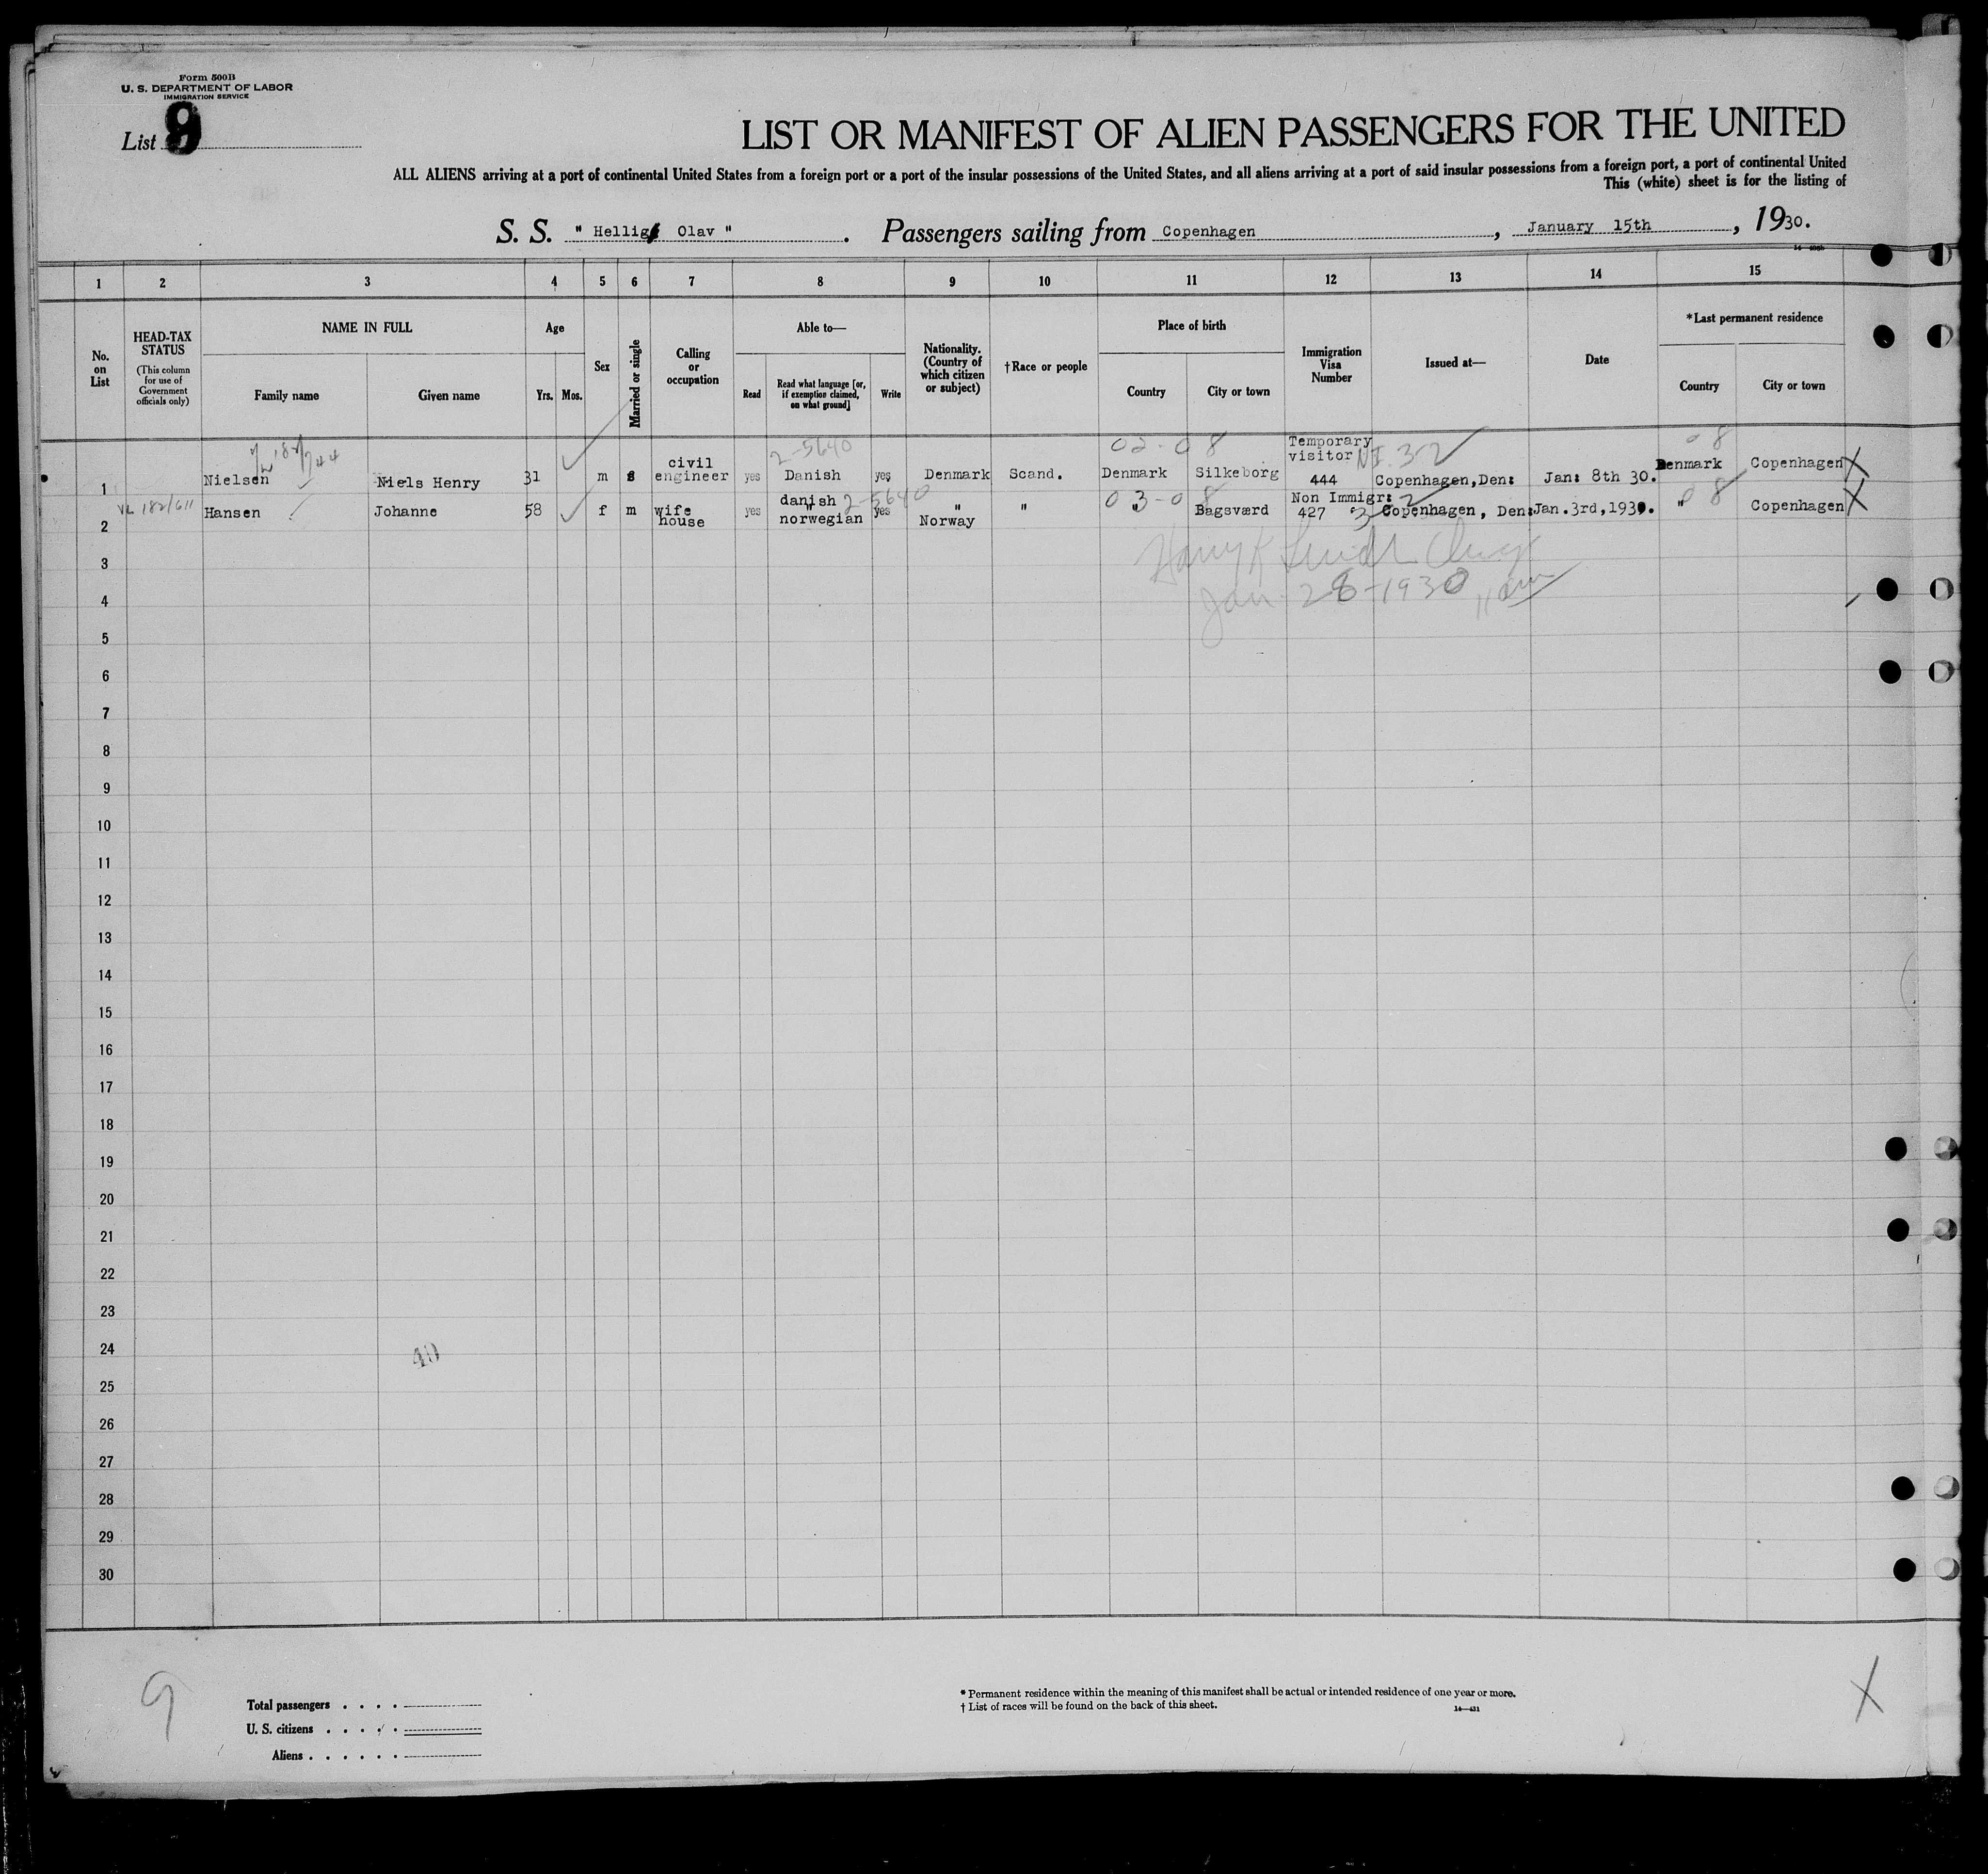 Form 500B
U. S. DEPARTMENT OF LABOR
IMMIGRATION SERVICE
List 9
LIST OR MANIFEST OF ALIEN PASSENGERS FOR THE UNITED
ALL ALIENS arriving at a port of continental United States from a foreign port or a port of the insular possessions of the United States, and all aliens arriving at a port of said insular possessions from a foreign port, a port of continental United
This (white) sheet is for the listing of
S. S. " Hellig Olav " . Passengers sailing from Copenhagen , January 15th , 1930.
1 2 3 4 5 6 7 8 9 10 11 12 13 14 15
No. on List
HEAD-TAX STATUS
(This column for use of Government officials only)
NAME IN FULL
Family name
Given name
Age
Yrs.
Mos.
Sex
Married or single
Calling or occupation
Able to—
Read
Read what language [or, if exemption claimed, on what ground]
Write
Nationality. (Country of which citizen or subject)
†Race or people
Place of birth
Country
City or town
Immigration Visa Number
Issued at—
Date
*Last permanent residence
Country
City or town
2-5640 02-08 08
1 Nielsen Niels Henry 31 m s civil engineer yes Danish yes Denmark Scand. Denmark Silkeborg Temporary visitor 444 Copenhagen,Den: Jan: 8th 30. Denmark Copenhagen X
182/611 2-5640 03-08 08
2 Hansen Johanne 58 f m wife house yes danish " norwegian yes " Norway " " Bagsværd Non Immigr: 427 Copenhagen, Den: Jan.3rd,1930. " Copenhagen X
3
Jan 28-1930
4
5
6
7
8
9
10
11
12
13
14
15
16
17
18
19
20
21
22
23
24
40
25
26
27
28
29
30
9
Total passengers . . . .
U. S. citizens . . . . .
Aliens . . . . . .
* Permanent residence within the meaning of this manifest shall be actual or intended residence of one year or more.
† List of races will be found on the back of this sheet.
X